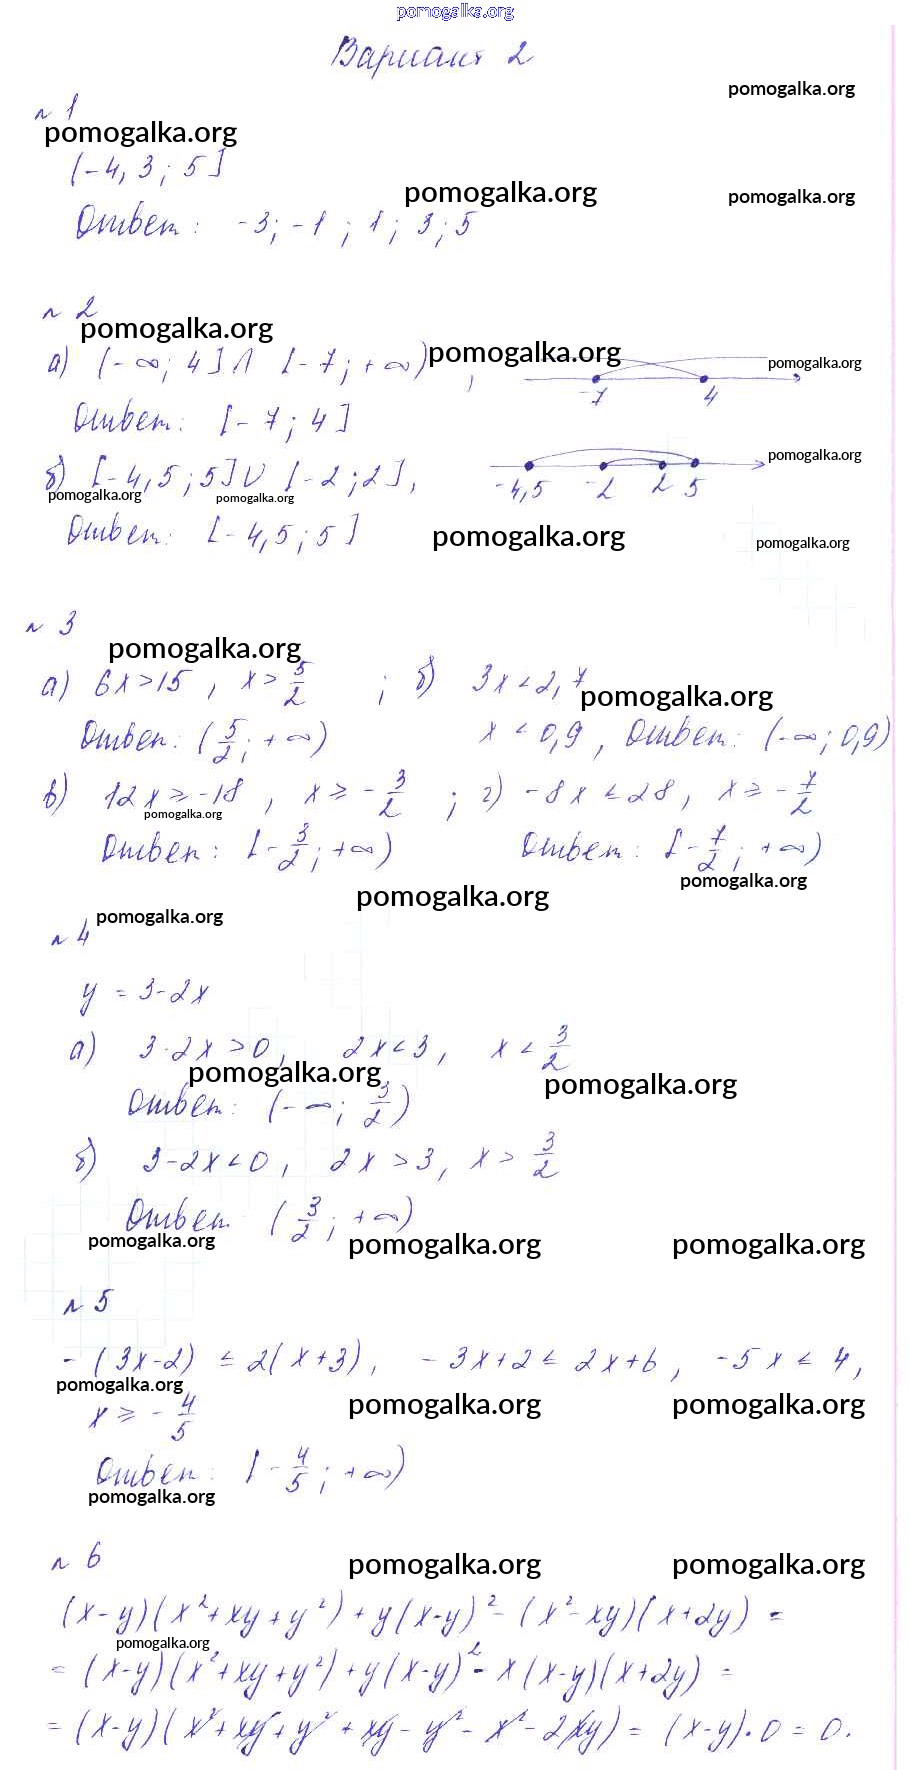 pomogalka.org
Вариант 2
pomogalka.org
№ 1
pomogalka.org
(-4,3; 5]
pomogalka.org pomogalka.org
Ответ: -3; -1; 1; 3; 5
№ 2
pomogalka.org
а) (-∞; 4] ∩ [-7; +∞), -7 4
pomogalka.org pomogalka.org
Ответ: [-7; 4]
б) [-4,5; 5] ∪ [-2; 2], -4,5 -2 2 5
pomogalka.org
pomogalka.org pomogalka.org
Ответ: [-4,5; 5]
pomogalka.org pomogalka.org
№ 3
pomogalka.org
а) 6x > 15, x > 5/2; б) 3x < 2,7
pomogalka.org
Ответ: (5/2; +∞) x < 0,9, Ответ: (-∞; 0,9)
в) 12x ≥ -18, x ≥ -3/2; г) -8x ≤ 28, x ≥ -7/2
pomogalka.org
Ответ: [-3/2; +∞) Ответ: [-7/2; +∞)
pomogalka.org
pomogalka.org
pomogalka.org
№ 4
y = 3-2x
а) 3-2x > 0, 2x < 3, x < 3/2
pomogalka.org pomogalka.org
Ответ: (-∞; 3/2)
б) 3-2x < 0, 2x > 3, x > 3/2
Ответ: (3/2; +∞)
pomogalka.org pomogalka.org pomogalka.org
№ 5
-(3x-2) ≤ 2(x+3), -3x+2 ≤ 2x+6, -5x ≤ 4,
pomogalka.org pomogalka.org pomogalka.org
x ≥ -4/5
Ответ: [-4/5; +∞)
pomogalka.org
№ 6
pomogalka.org pomogalka.org
(x-y)(x²+xy+y²)+y(x-y)²-(x²-xy)(x+2y) =
pomogalka.org
= (x-y)(x²+xy+y²)+y(x-y)²-x(x-y)(x+2y) =
= (x-y)(x²+xy+y²+xy-y²-x²-2xy) = (x-y)·0 = 0.